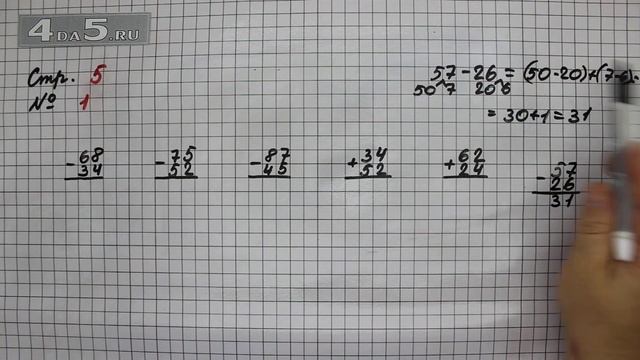 4DA5.RU
Стр. 5
№ 1
57 - 26 = (50 - 20) + (7 - 6) =
50 7 20 6
= 30 + 1 = 31
- 68 - 75 - 87 + 34 + 62 - 57
34 52 45 52 24 26
31